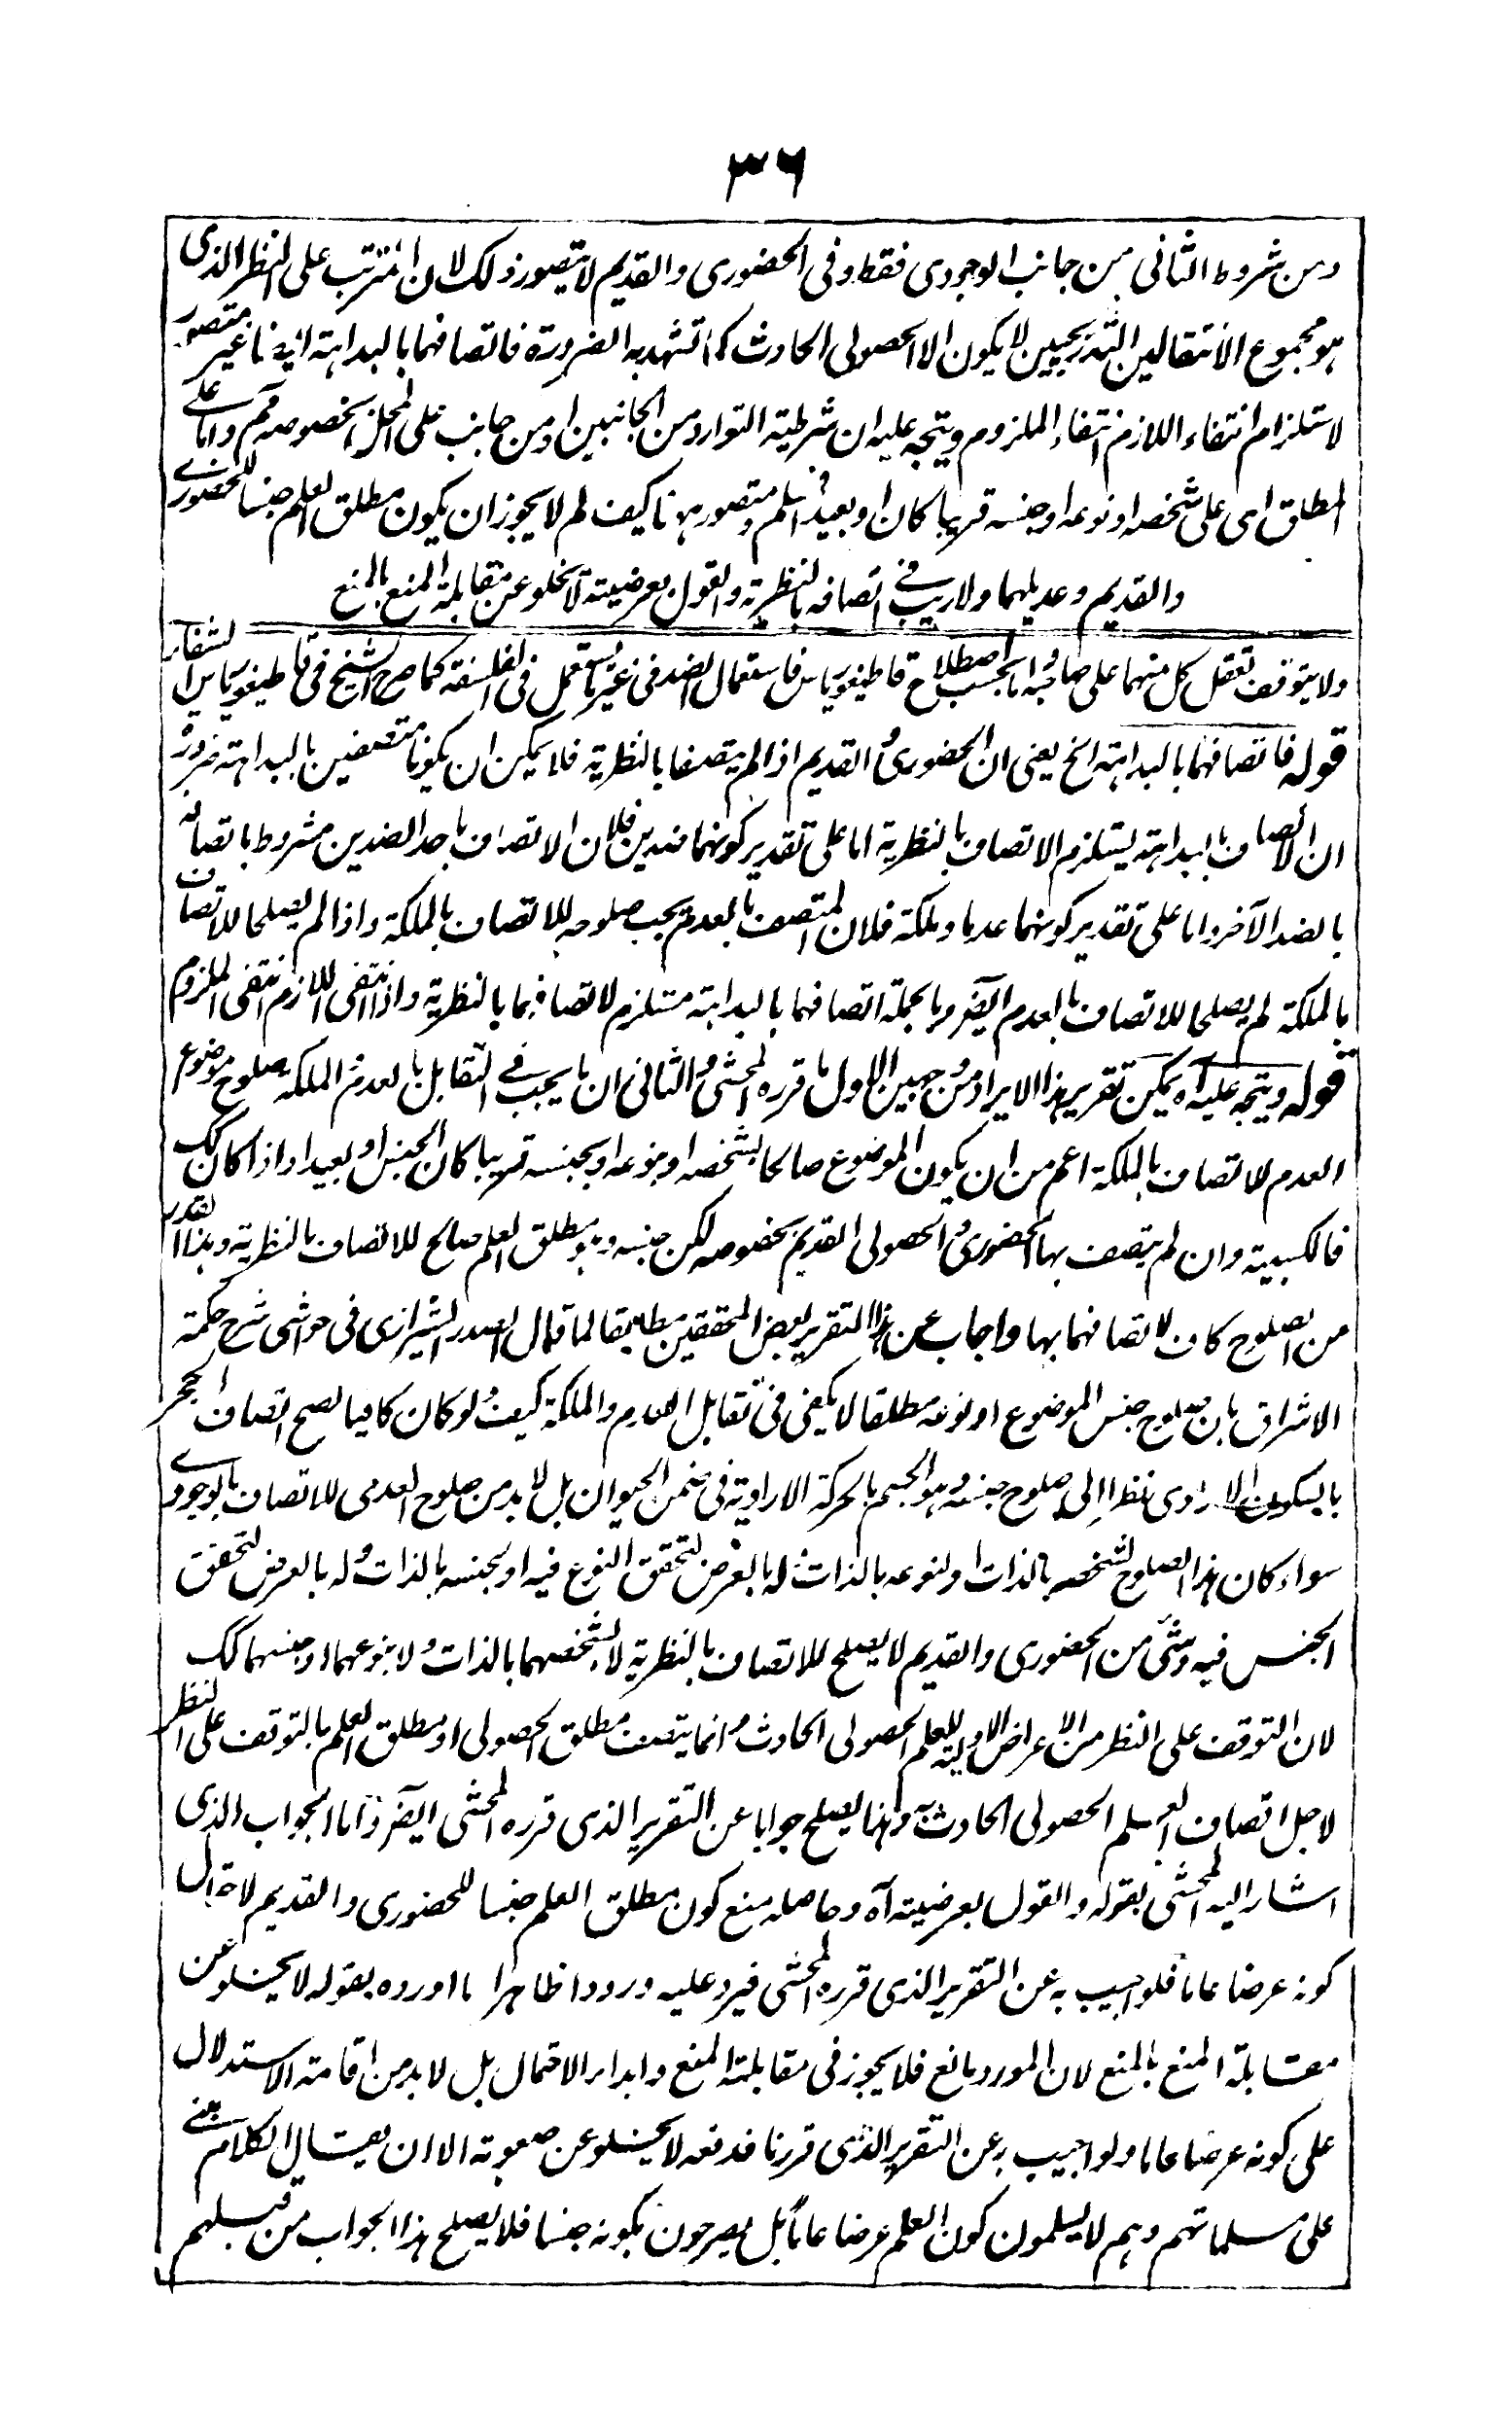 ٣٦
ومن شروط الثانى من جانب الوجودى فقط وفى الحضورى والقديم لا يتصور ذلك لان المترتب على النظر الذى
هو مجموع الانتقالين التدريجيين لا يكون الا الحصولى الحادث كما تشهد به الضرورة فاتصافهما بالبداهته ايضا غير متصور
لاستلزام انتفاء اللازم انتفاء الملزوم ويتجه عليه ان شرطية التوارد من الجانبين او من جانب على المحل بخصوصه مم واما على
المطلق اى على شخصه او نوعه او جنسه قريبا كان او بعيدا فمسلم ومتصور ههنا كيف لم لا يجوز ان يكون مطلق العلم جنسا للحضورى
والقديم وعديلهما ولا ريب فى اتصافه بالنظرية والقول بعرضيته لا يخلو عن مقابلة المنع بالمنع
ولا يتوقف تعقل كل منهما على صاحبه اما بحسب اصطلاح قاطيغورياس فاستعمال الضد فى غير مستعمل فى الفلسفة كما صرح الشيخ فى قاطيغورياس الشفاء
قوله فاتصافهما بالبداهته الخ يعنى ان الحضورى والقديم اذا لم يتصفا بالنظرية فلا يمكن ان يكونا متصفين بالبداهته ضرورة
ان الاتصاف بالبداهته يستلزم الاتصاف بالنظرية اما على تقدير كونهما ضدين فلان الاتصاف باحد الضدين مشروط باتصافه
بالضد الآخر واما على تقدير كونهما عدما وملكة فلان المتصف بالعدم يجب صلوحه للاتصاف بالملكة واذا لم يصلحا للاتصاف
بالملكة لم يصلحا للاتصاف بالعدم ايضا وبالجملة اتصافهما بالبداهته مستلزم لاتصافهما بالنظرية واذا انتفى اللازم انتفى الملزوم
قوله ويتجه عليه آه يمكن تقرير هذا الايراد من وجهين الاول ما قرره المحشى والثانى ان ما يجب فى التقابل بالعدم والملكة صلوح موضوع
العدم للاتصاف بالملكة اعم من ان يكون الموضوع صالحا بشخصه او بنوعه او بجنسه قريبا كان الجنس او بعيدا واذا كان كك
فالكسبية وان لم يتصف بها الحضورى والحصولى القديم بخصوصه لكن جنسه وهو مطلق العلم صالح للاتصاف بالنظرية وهذا القدر
من الصلوح كاف لاتصافهما بها واجاب عن هذا التقرير بعض المحققين مطابقا لما قال الصدر الشيرازى فى حواشى شرح حكمة
الاشراق بان صلوح جنس الموضوع او نوعه مطلقا لا يكفى فى تقابل العدم والملكة كيف ولو كان كافيا لصح اتصاف الحجر
بالسكون الارادى نظرا الى صلوح جنسه وهو الجسم بالحركة الارادية فى ضمن الحيوان بل لا بد من صلوح العدمى للاتصاف بالوجودى
سواء كان هذا الصلوح لشخصه بالذات او لنوعه بالذات وله بالعرض لتحقق النوع فيه او لجنسه بالذات وله بالعرض لتحقق
الجنس فيه وشئ من الحضورى والقديم لا يصلح للاتصاف بالنظرية لا بشخصهما بالذات ولا بنوعهما او جنسهما كك
لان التوقف على النظر من الاعراض الاولية للعلم الحصولى الحادث وانما يتصف مطلق الحصولى او مطلق العلم بالتوقف على النظر
لاجل اتصاف العلم الحصولى الحادث به وهذا يصلح جوابا عن التقرير الذى قرره المحشى ايضا واما الجواب الذى
اشار اليه المحشى بقوله والقول بعرضيته آه وحاصله منع كون مطلق العلم جنسا للحضورى والقديم لاحتمال
كونه عرضا عاما فلو اجيب به عن التقرير الذى قرره المحشى فيرد عليه ورودا ظاهرا ما اورده بقوله لا يخلو عن
مقابلة المنع بالمنع لان المورد مانع فلا يجوز فى مقابلته المنع وابداء الاحتمال بل لا بد من اقامة الاستدلال
على كونه عرضا عاما ولو اجيب به عن التقرير الذى قررنا فدفعه لا يخلو عن صعوبة الا ان يقال الكلام مبنى
على مسلماتهم وهم لا يسلمون كون العلم عرضا عاما بل يصرحون بكونه جنسا فلا يصلح هذا الجواب من قبلهم